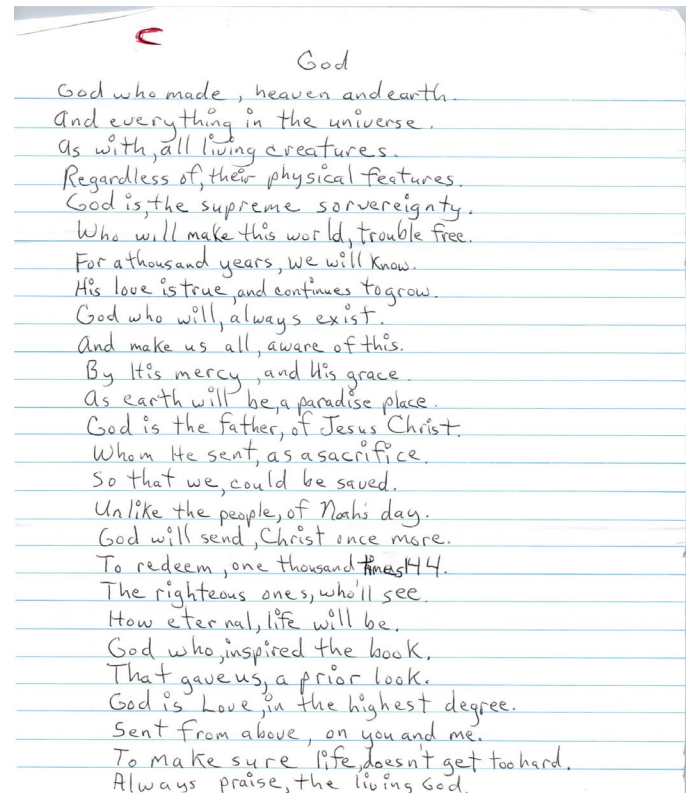 God
God who made, heaven and earth.
And everything in the universe.
As with, all living creatures.
Regardless of, their physical features.
God is, the supreme sorvereignty.
Who will make this world, trouble free.
For a thousand years, we will know.
His love is true, and continues to grow.
God who will, always exist.
And make us all, aware of this.
By His mercy, and His grace.
As earth will be, a paradise place.
God is the father, of Jesus Christ.
Whom He sent, as a sacrifice.
So that we, could be saved.
Unlike the people, of Noah's day.
God will send, Christ once more.
To redeem, one thousand times 144.
The righteous ones, who'll see.
How eternal, life will be.
God who, inspired the book.
That gave us, a prior look.
God is Love, in the highest degree.
Sent from above, on you and me.
To make sure life, doesn't get too hard.
Always praise, the living God.